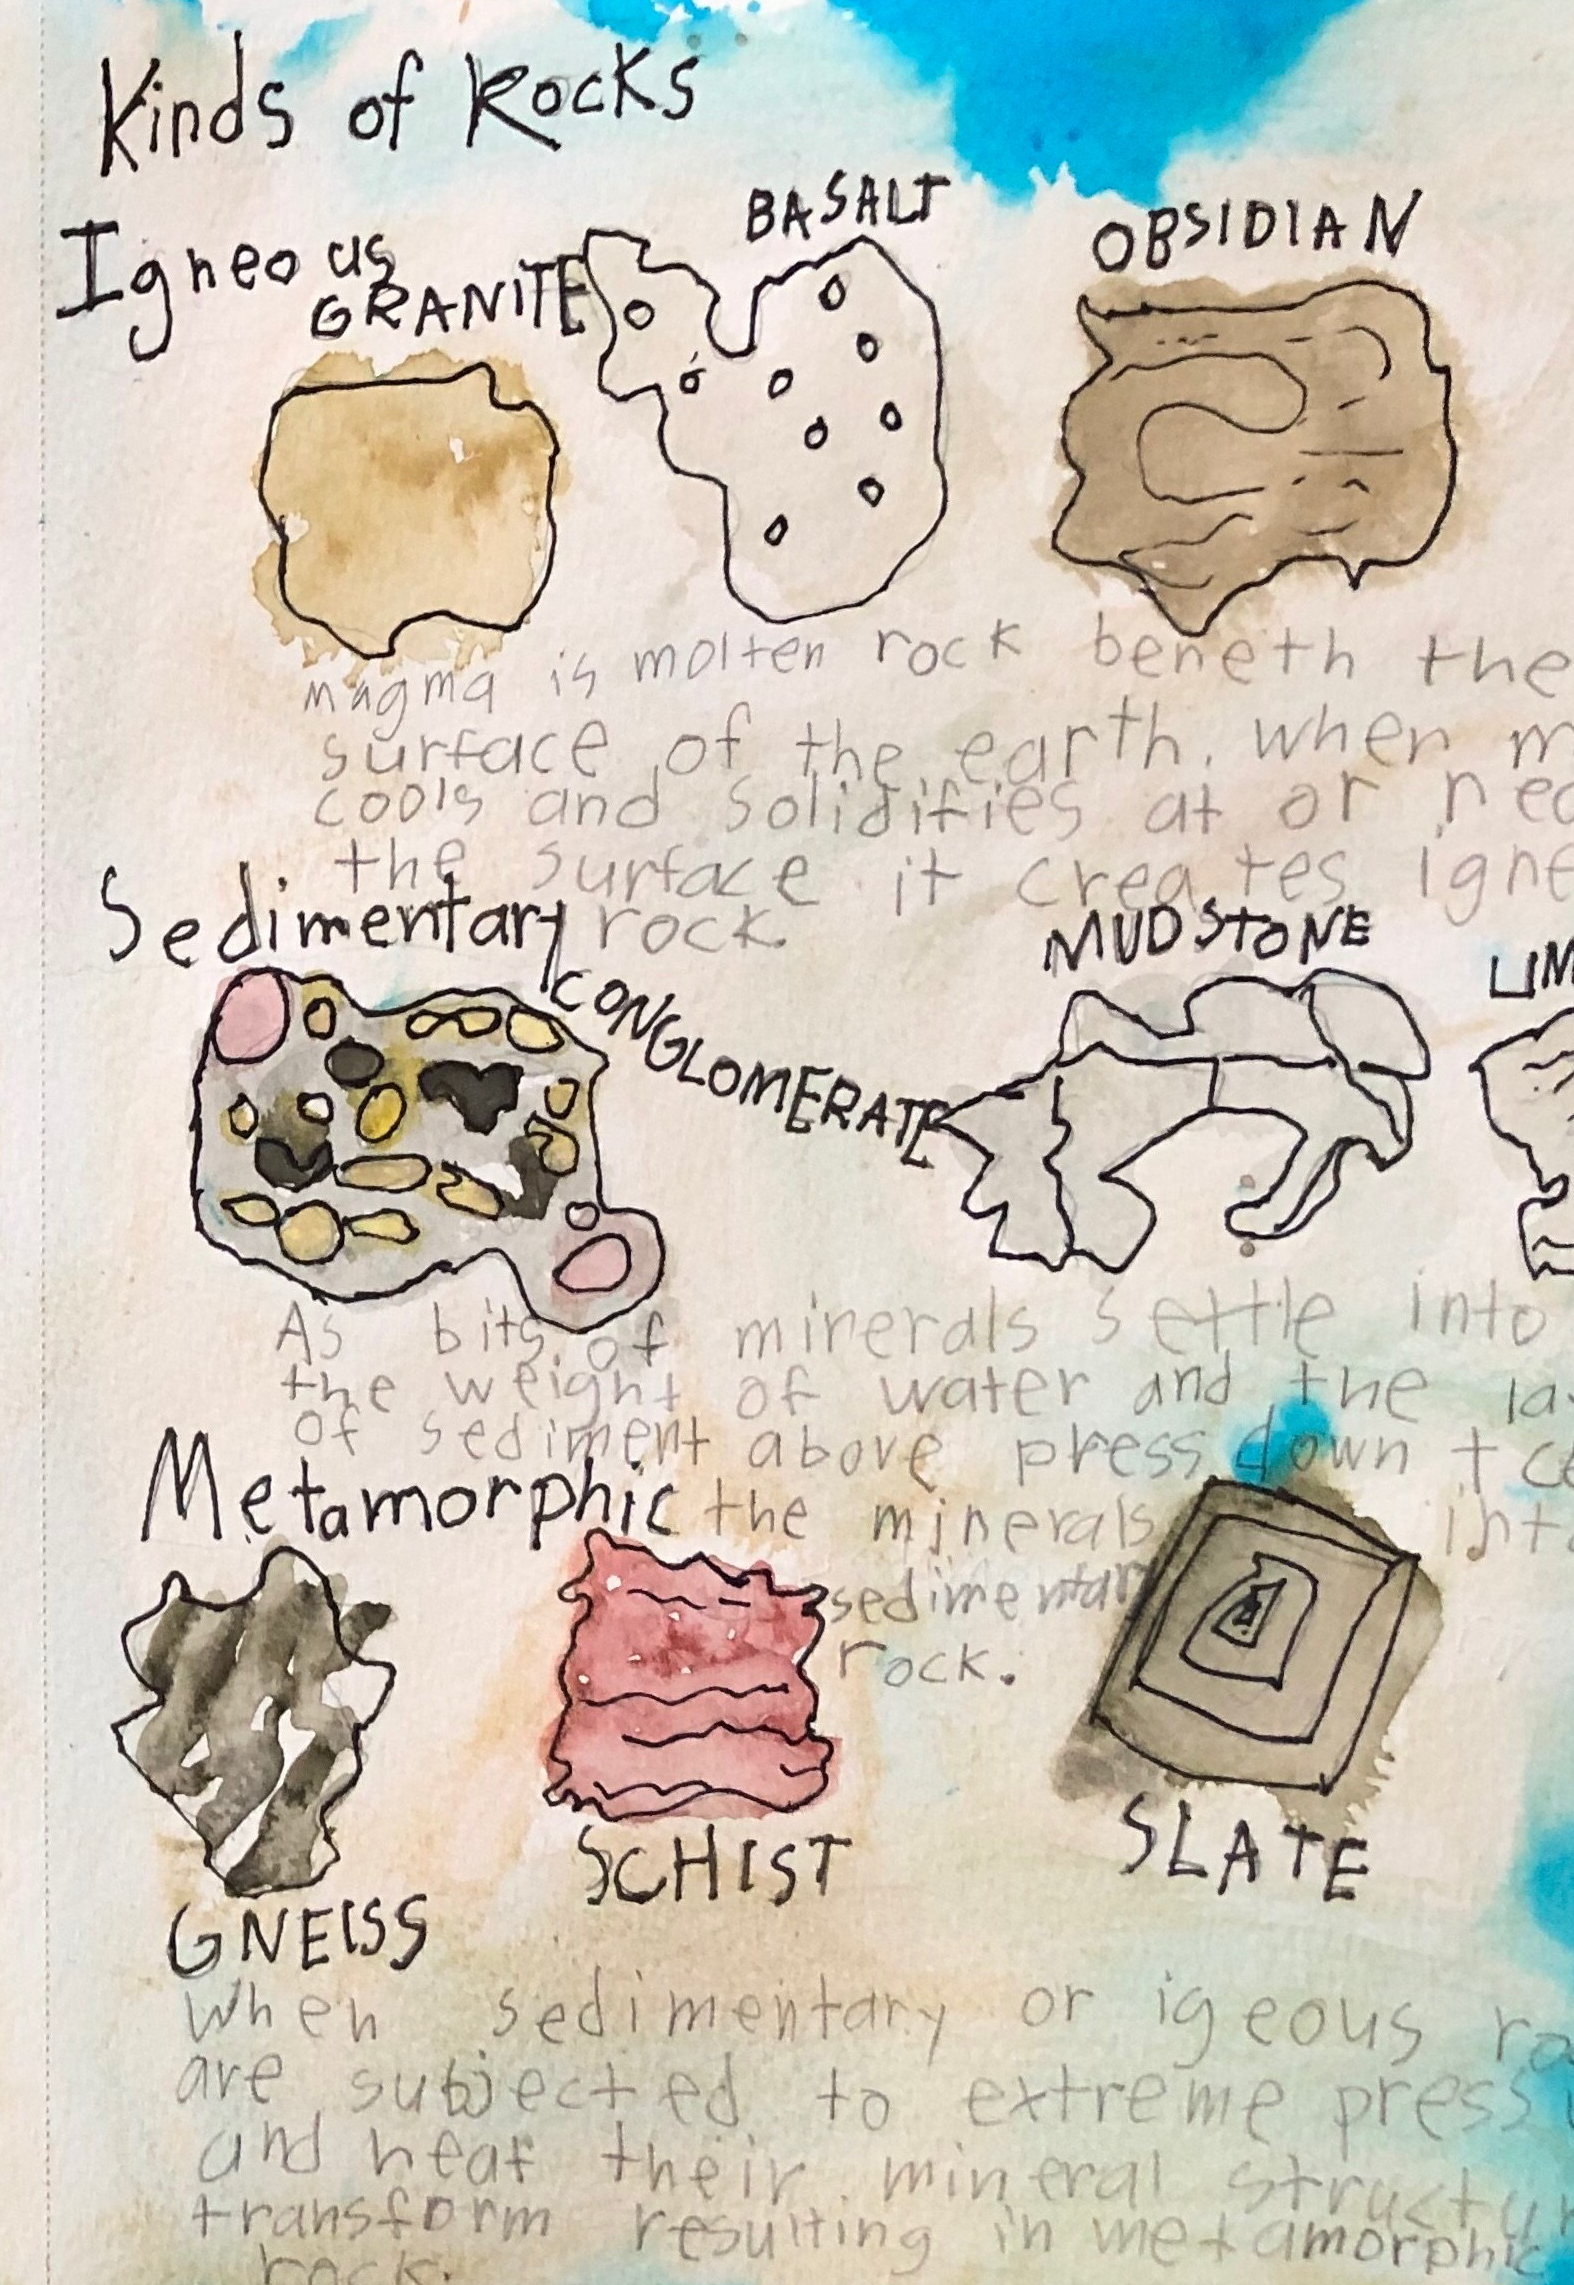 Kinds of Rocks
Igneous
GRANITE
BASALT
OBSIDIAN
magma is molten rock beneth the
surface of the earth. when m
cools and solidifies at or nea
the surface it creates igne
rock.
Sedimentary
CONGLOMERATE
MUDSTONE
LIM
As bits of minerals settle into
the weight of water and the la
of sediment above press down + ce
the minerals into
sedimentary
rock.
Metamorphic
GNEISS
SCHIST
SLATE
When sedimentary or igeous ro
are subjected to extreme press
and heat their mineral structur
transform resulting in metamorphic
rock.